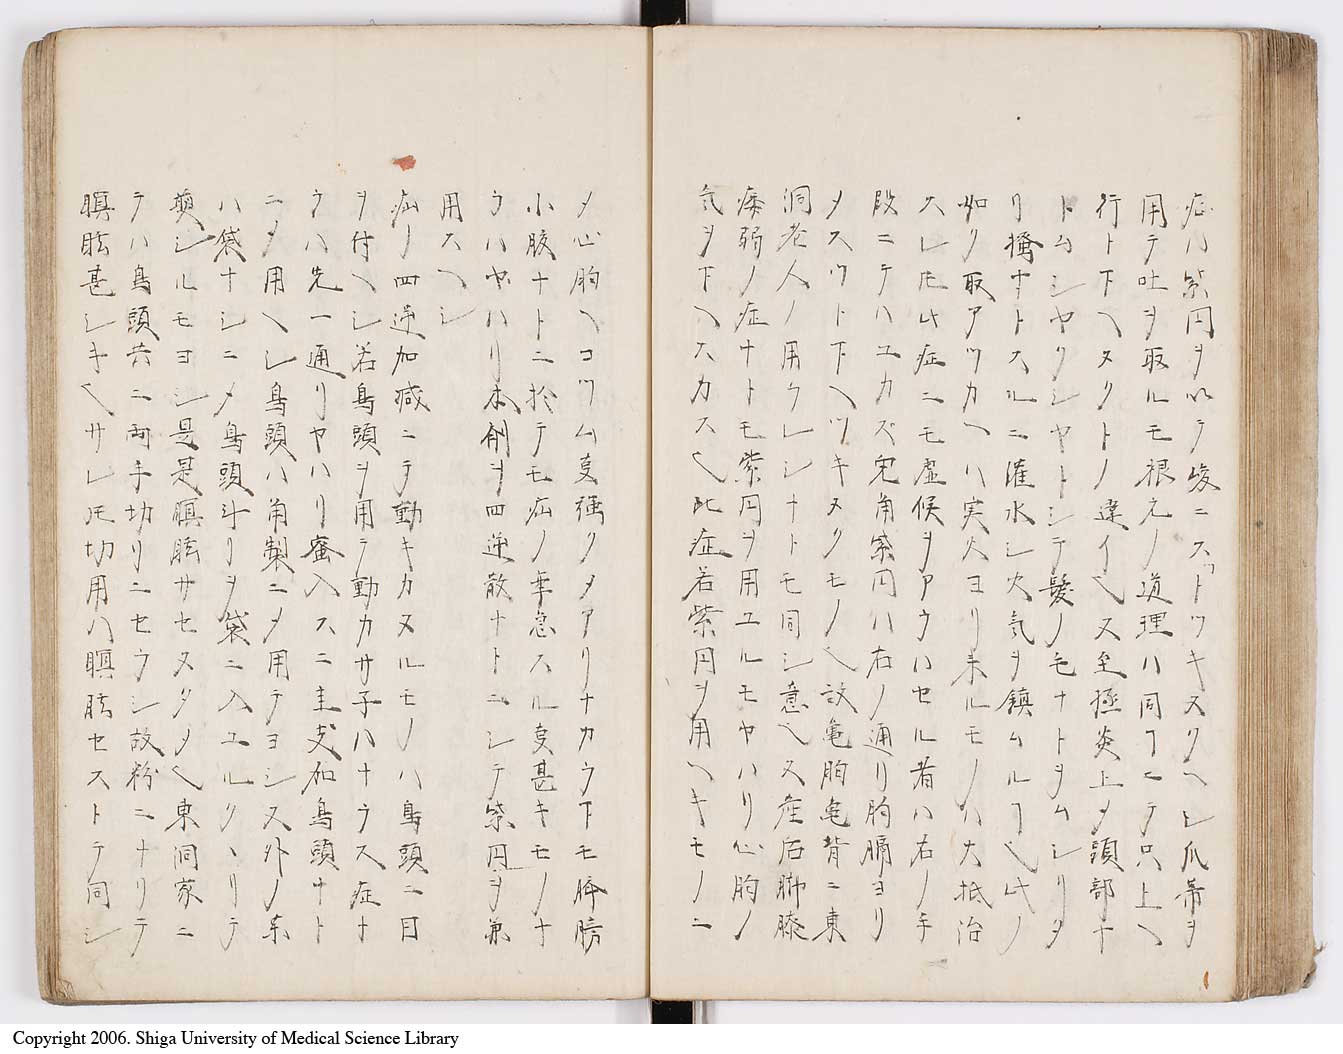 症ハ紫円ヲ以テ峻ニスツトツキヌクヘシ瓜蒂ヲ
用テ吐ヲ取ルモ根元ノ道理ハ同ヿニテ只上ヘ
行ト下ヘヌクトノ違イ也又至極炎上〆頭部ナ
トムシヤクシヤトシテ髪ノ毛ナトヲムシリタ
リ掻ナトスルニ灌水シ火気ヲ鎮ムルヿ也此ノ
如ク取アツカヘハ実火ヨリ来ルモノハ大抵治
スレ𪜈此症ニモ虚候ヲアラハセル者ハ右ノ手
段ニテハユカズ兎角紫円ハ右ノ通リ胸膈ヨリ
〆スツト下ヘツキヌクモノ也故亀胸亀背ニ東
洞老人ノ用ラレシナトモ同シ意也又産后脚膝
痿弱ノ症ナトモ紫円ヲ用ユルモヤハリ心胸ノ
気ヲ下ヘスカス也此症若紫円ヲ用ヘキモノニ
〆心胸ヘコツム叓強ク〆アリナカラ下モ
小腹ナトニ於テモ疝ノ牽急スル叓甚キモノナ
ラハヤハリ本剤ヲ四逆散ナトニシテ紫円ヲ兼
用スヘシ
疝ノ四逆加減ニテ動キカヌルモノハ烏頭ニ目
ヲ付ヘシ若烏頭ヲ用テ動カサ子ハナラス症ナ
ラハ先一通リヤハリ蜜入スニ主支加烏頭ナト
ニ〆用ヘシ烏頭ハ角製ニ〆用テヨシ又外ノ薬
ハ袋ナシニ〆烏頭斗リヲ袋ニ入ユルクヽリテ
煎シルモヨシ是是瞑眩サセヌタメ也東洞家ニ
テハ烏頭共ニ両手切リニセラシ故粉ニナリテ
瞑眩甚シキ也サレ𪜈切用ハ瞑眩セストテ同シ